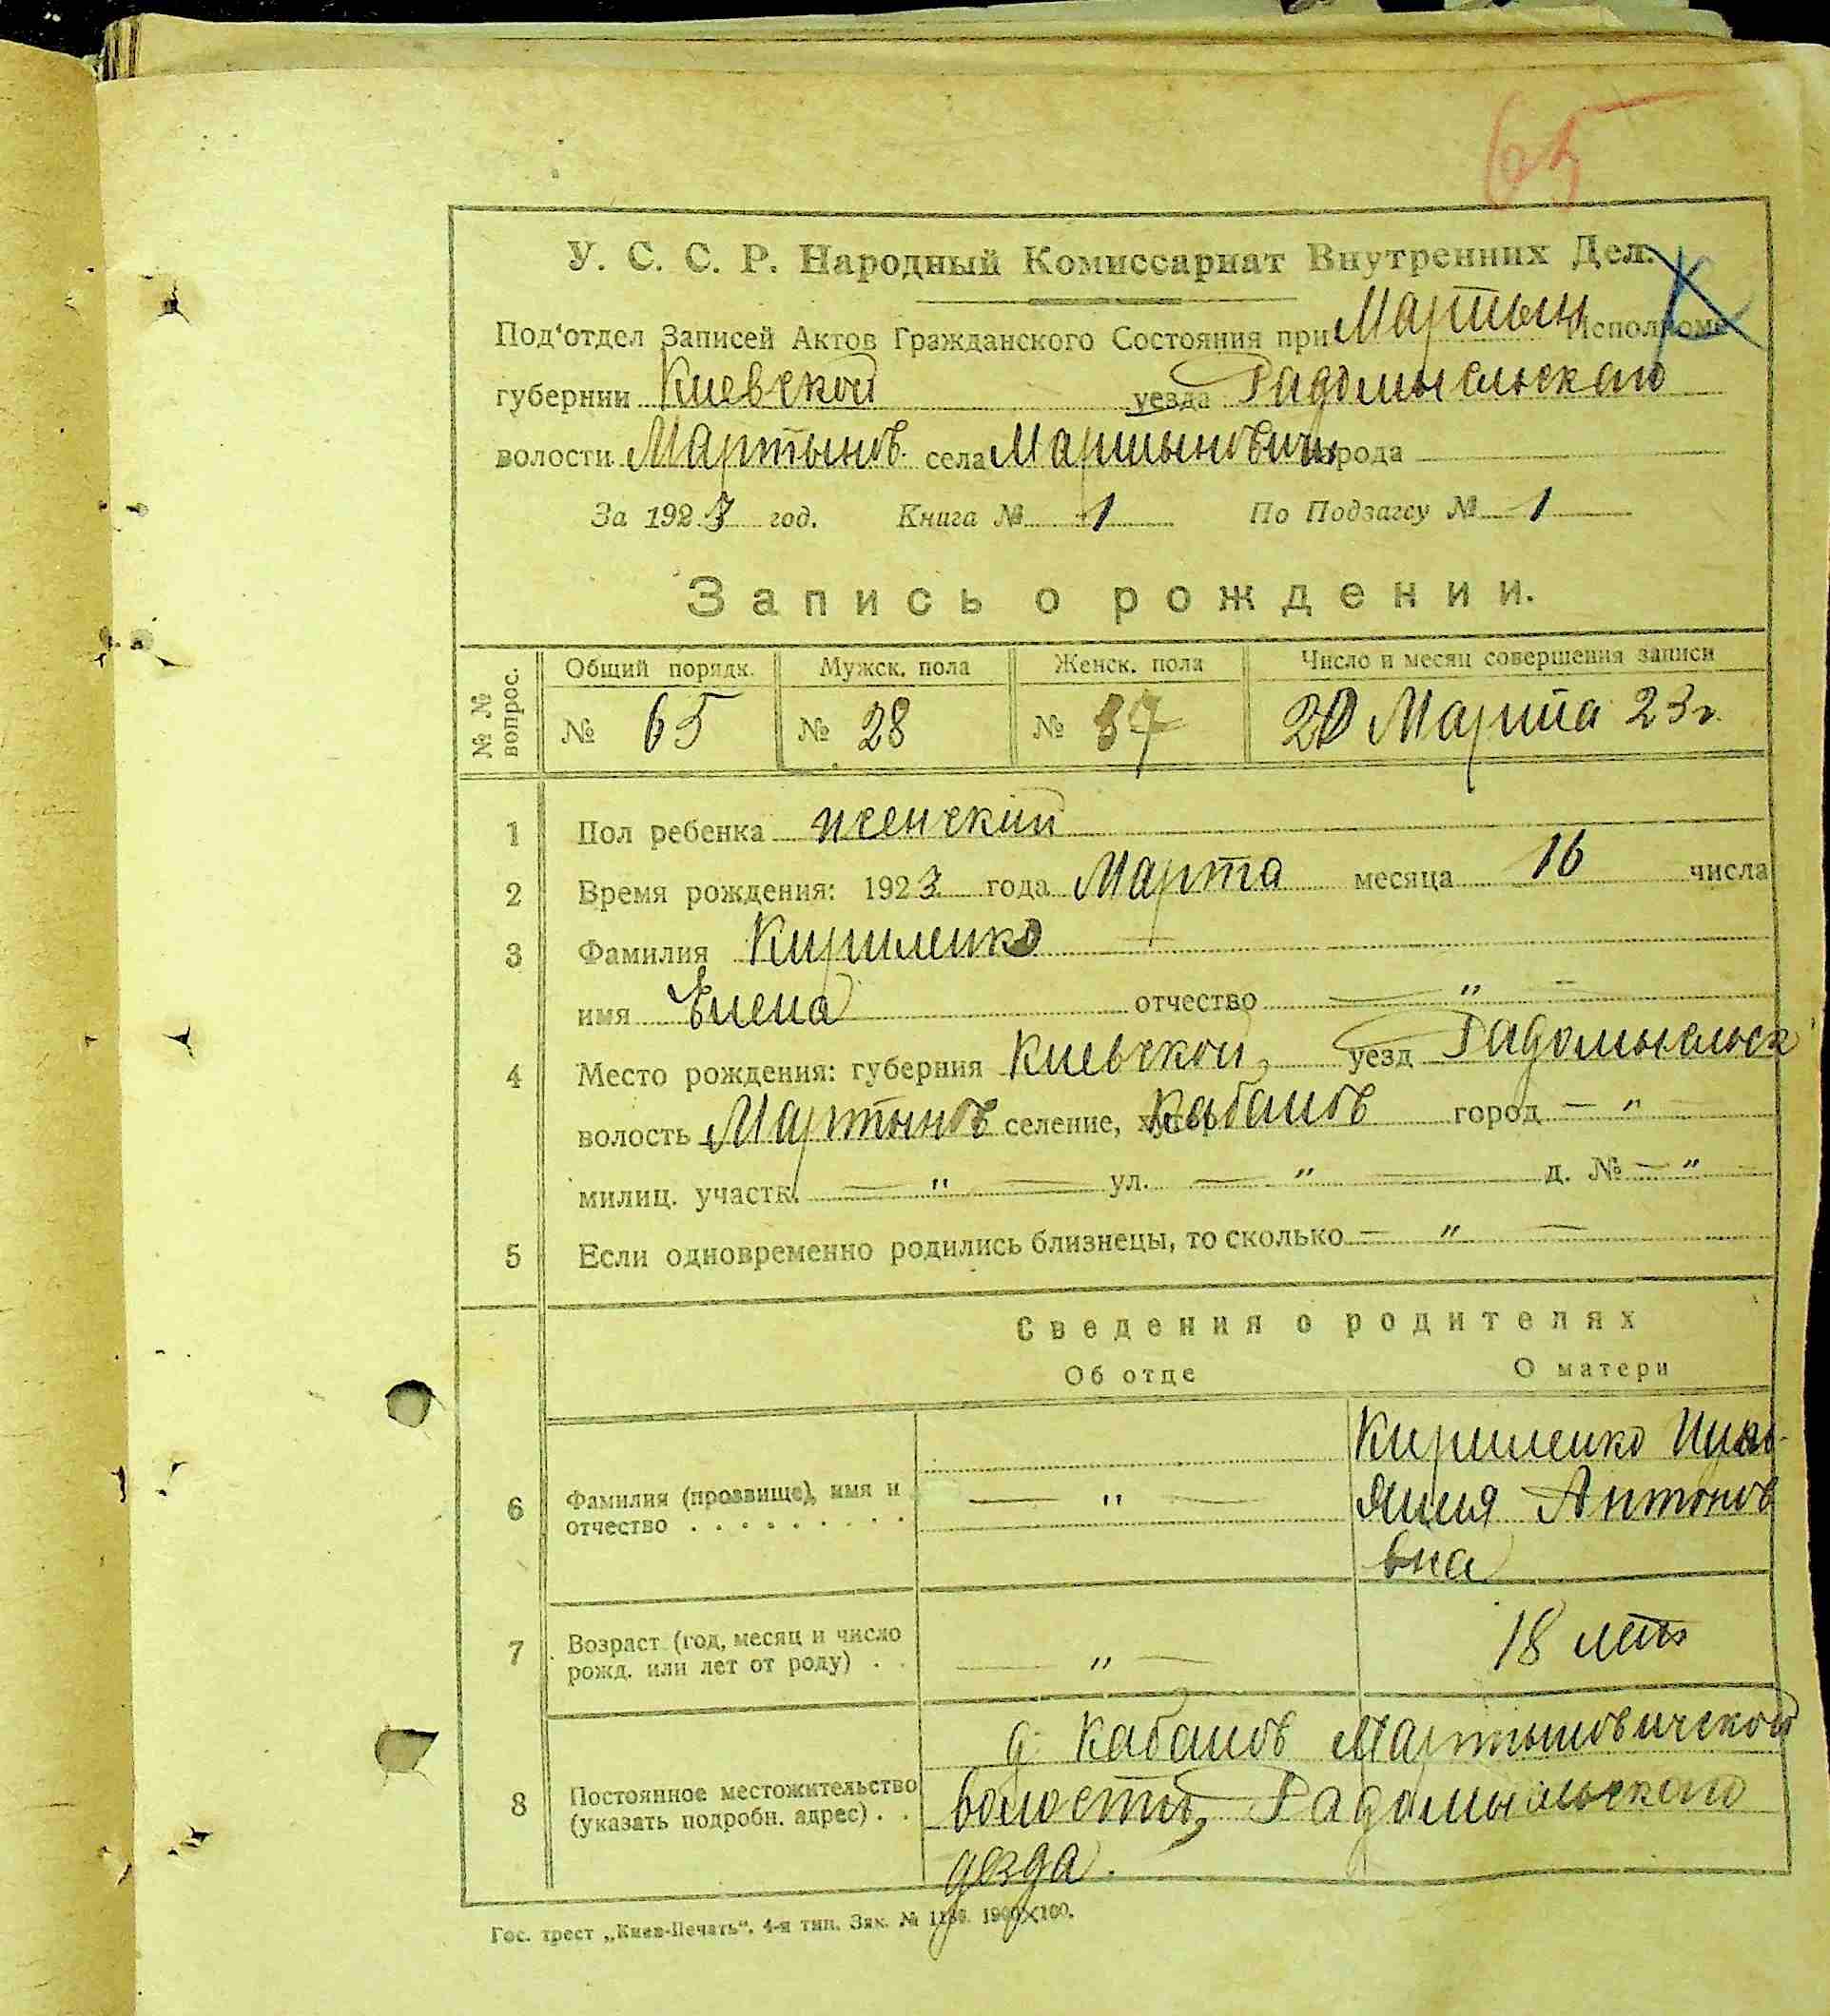 65
У. С. С. Р. Народный Комиссариат Внутренних Дел.
Под‘отдел Записей Актов Гражданского Состояния при Мартын Исполкоме
губернии Киевской уезда Радомысльскаго
волости Мартынов. села Мартыновичи города
За 1923 год. Книга № 1 По Подзагсу № 1
Запись о рождении.
№ № вопрос.
Общий порядк. Мужск. пола Женск. пола Число и месяц совершения записи
№ 65 № 28 № 37 20 Марта 23 г.
1 Пол ребенка женский
2 Время рождения: 1923 года Марта месяца 16 числа
3 Фамилия Кириленко
имя Елена отчество — " —
4 Место рождения: губерния Киевской, уезд Радомысльск
волость Мартынов селение, хутор Кабанов город — " —
милиц. участк. — " — ул. — " — д. № — " —
5 Если одновременно родились близнецы, то сколько — " —
Сведения о родителях
Об отце О матери
6 Фамилия (прозвище), имя и отчество . . . . . . . . . — " — Кириленко Антонов
вна
7 Возраст (год, месяц и число рожд. или лет от роду) . . — " — 18 летъ
8 Постоянное местожительство (указать подробн. адрес) . . д. Кабанов Мартыновичской
волости, Радомысльского
уезда.
Гос. трест „Киев-Печать“. 4-я тип. Зак. №